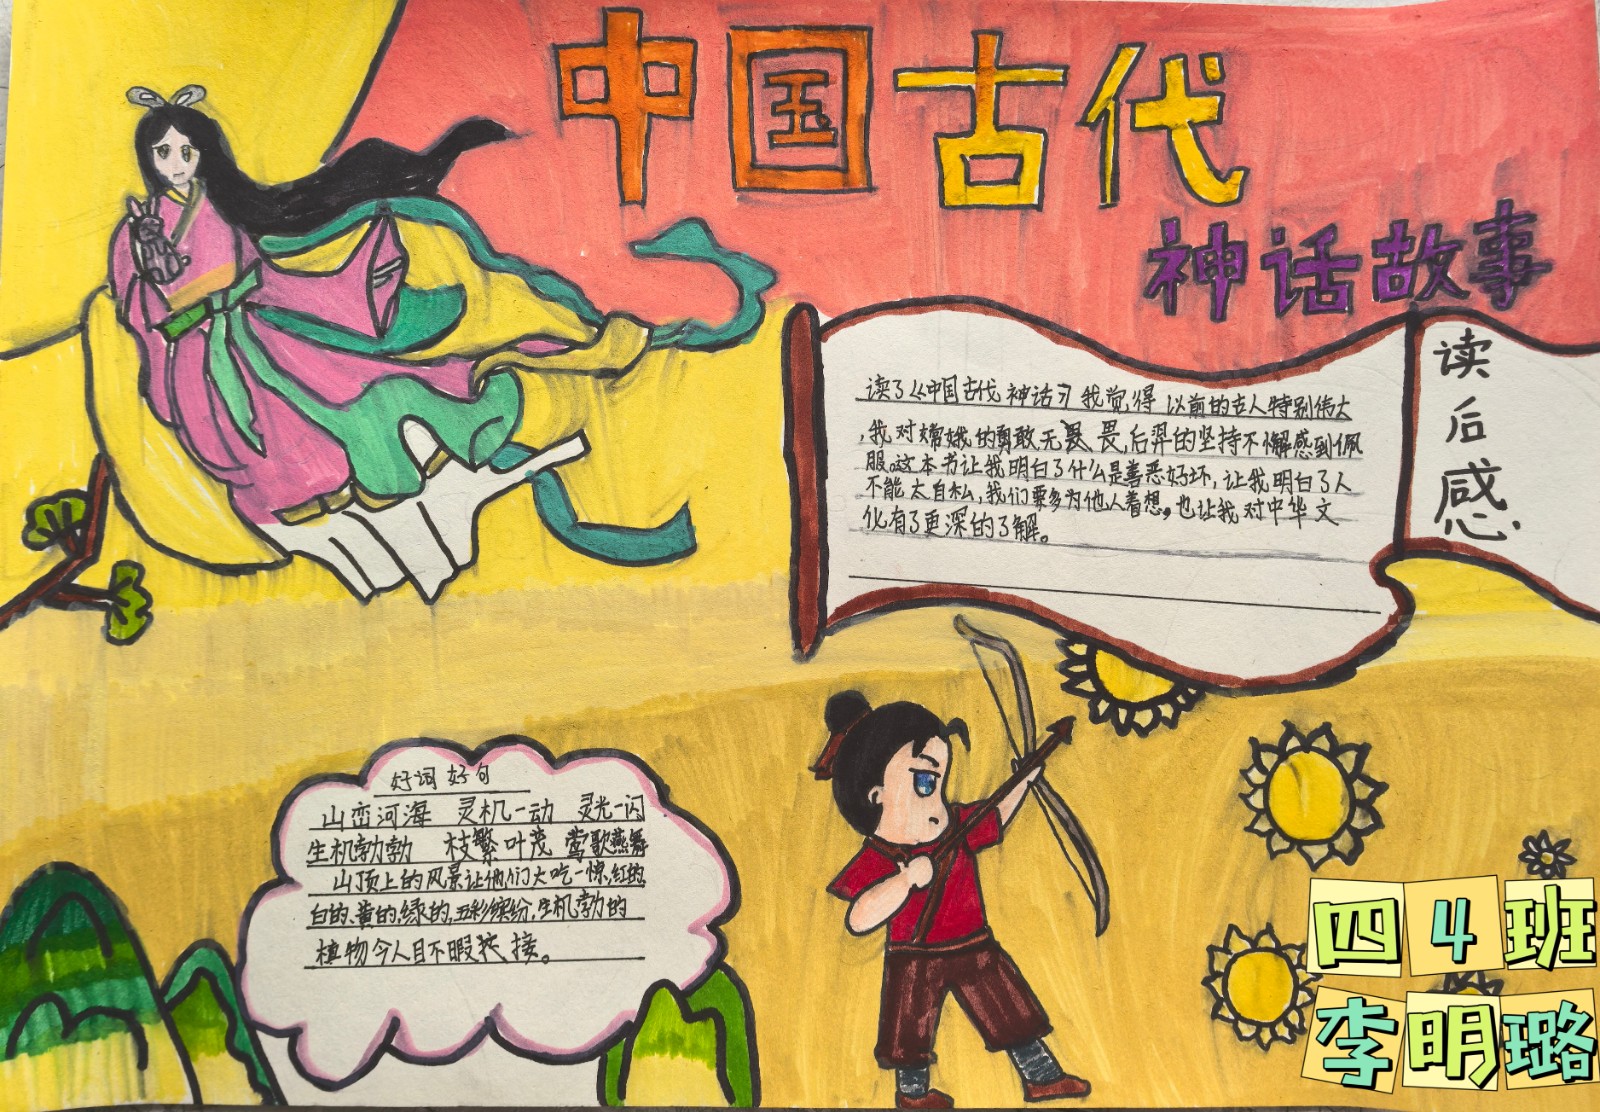 中国古代
神话故事
读后感
读了《中国古代神话》我觉得以前的古人特别伟大
,我对嫦娥的勇敢无畏畏,后羿的坚持不懈感到佩
服。这本书让我明白了什么是善恶好坏,让我明白了人
不能太自私,我们要多为他人着想。也让我对中华文
化有了更深的了解。
好词好句
山峦河海 灵机一动 灵光一闪
生机勃勃 枝繁叶茂 莺歌燕舞
山顶上的风景让他们大吃一惊,红的、
白的、黄的、绿的,五彩缤纷,生机勃的
植物令人目不暇接。
四4班
李明璐